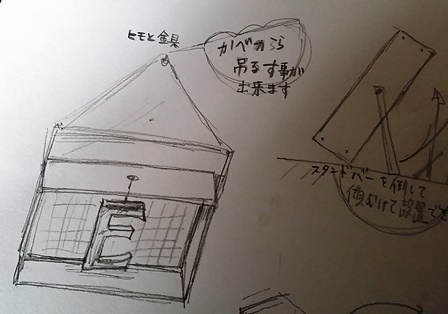 ヒモと金具
カベから
吊るす事が
出来ます
スタンドバーを倒して
傾むけて設置でき